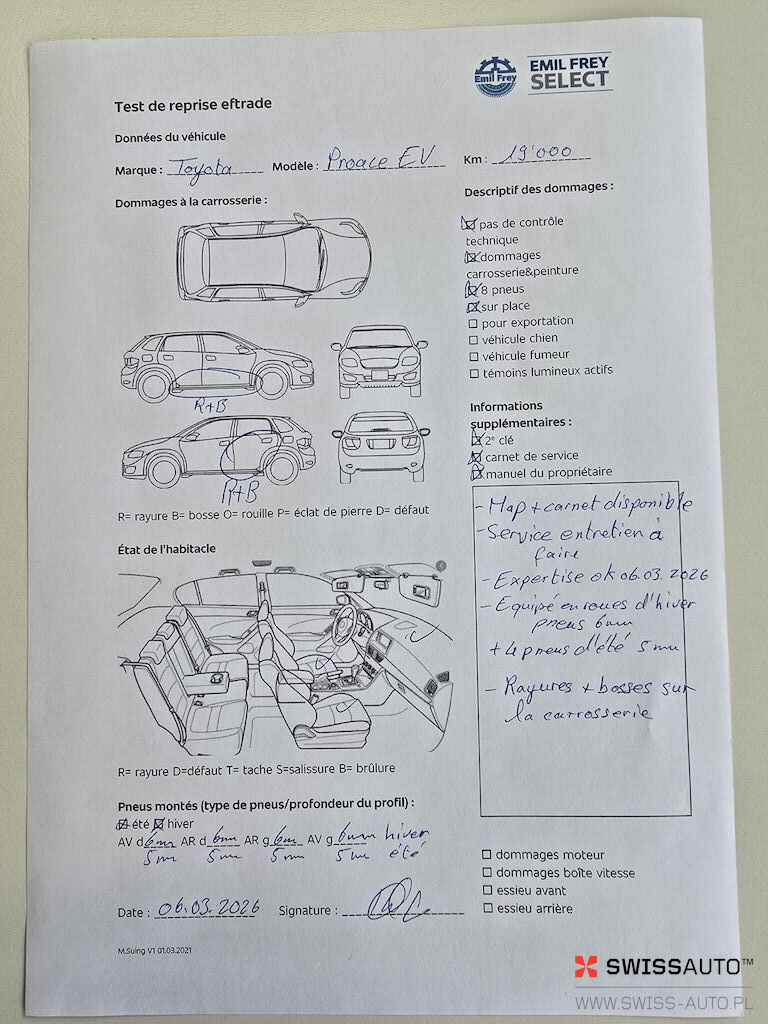 Emil Frey
EMIL FREY
SELECT
Test de reprise eftrade
Données du véhicule
Marque : Toyota Modèle : Proace EV Km : 19'000
Dommages à la carrosserie :
Descriptif des dommages :
☒ pas de contrôle
technique
☒ dommages
carrosserie&peinture
☒ 8 pneus
☒ sur place
☐ pour exportation
☐ véhicule chien
☐ véhicule fumeur
☐ témoins lumineux actifs
R+B
R+B
R= rayure B= bosse O= rouille P= éclat de pierre D= défaut
Informations
supplémentaires :
☒ 2e clé
☒ carnet de service
☒ manuel du propriétaire
- Map + carnet disponible
- Service entretien à
faire
- Expertise ok 06.03.2026
- Equipé en roues d'hiver
pneus 6mm
+ 4 pneus d'été 5 mm
- Rayures + bosses sur
la carrosserie
État de l'habitacle
R= rayure D=défaut T= tache S=salissure B= brûlure
Pneus montés (type de pneus/profondeur du profil) :
☒ été ☒ hiver
AV d 6mm AR d 6mm AR g 6mm AV g 6mm hiver
5 mm 5 mm 5 mm 5 mm été
Date : 06.03.2026 Signature :
☐ dommages moteur
☐ dommages boîte vitesse
☐ essieu avant
☐ essieu arrière
M.Suing V1 01.03.2021
SWISSAUTO™
WWW.SWISS-AUTO.PL